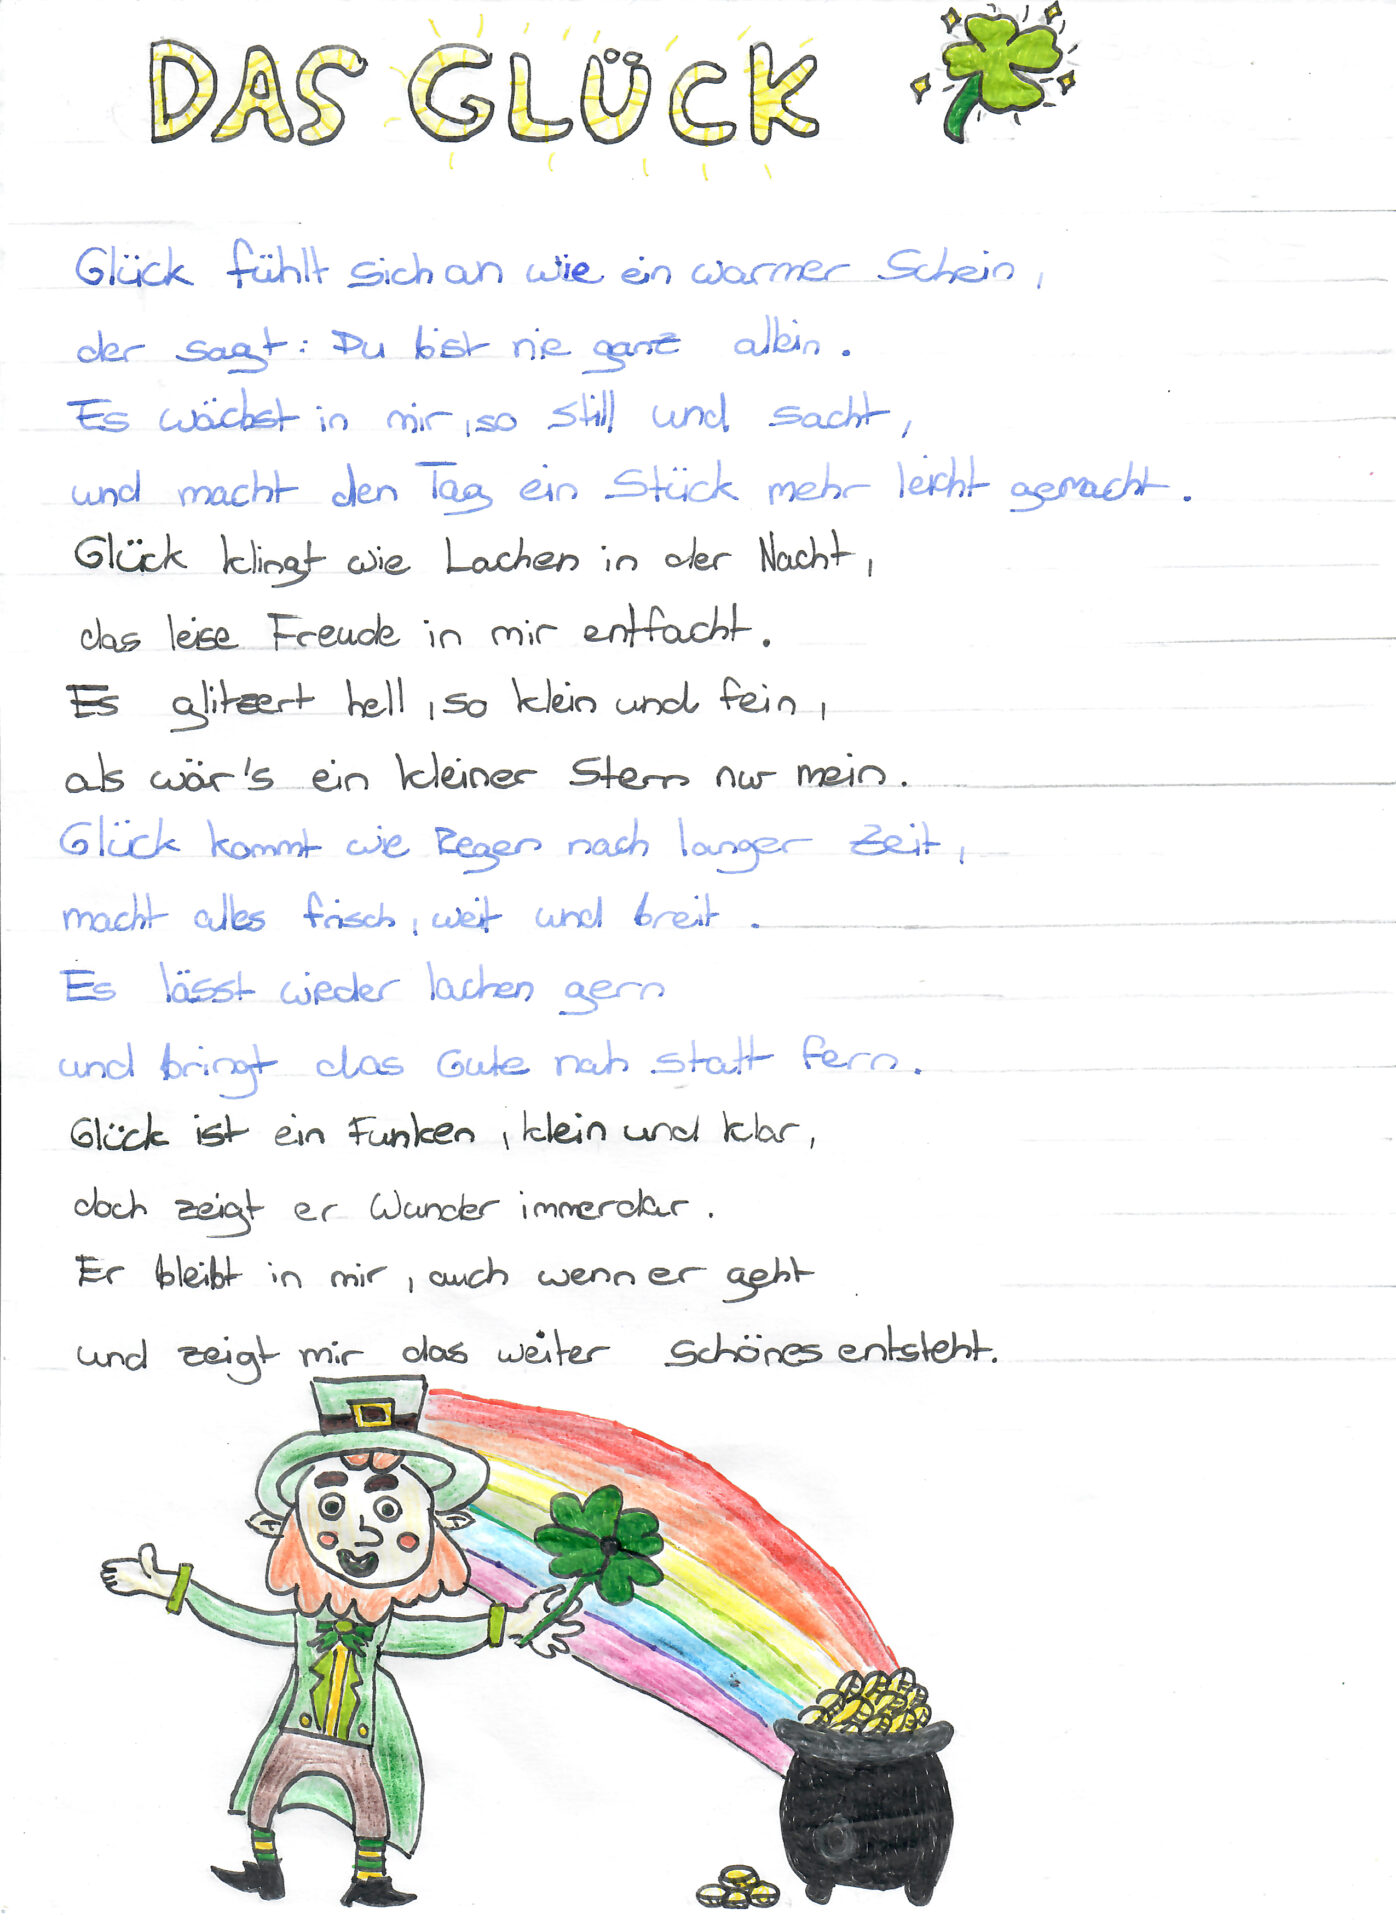 DAS GLÜCK
Glück fühlt sich an wie ein warmer Schein,
der sagt: Du bist nie ganz allein.
Es wächst in mir, so still und sacht,
und macht den Tag ein Stück mehr leicht gemacht.
Glück klingt wie Lachen in der Nacht,
das leise Freude in mir entfacht.
Es glitzert hell, so klein und fein,
als wär's ein kleiner Stern nur mein.
Glück kommt wie Regen nach langer Zeit,
macht alles frisch, weit und breit.
Es lässt wieder lachen gern
und bringt das Gute nah statt fern.
Glück ist ein Funken, klein und klar,
doch zeigt er Wunder immerdar.
Er bleibt in mir, auch wenn er geht
und zeigt mir das weiter schönes entsteht.